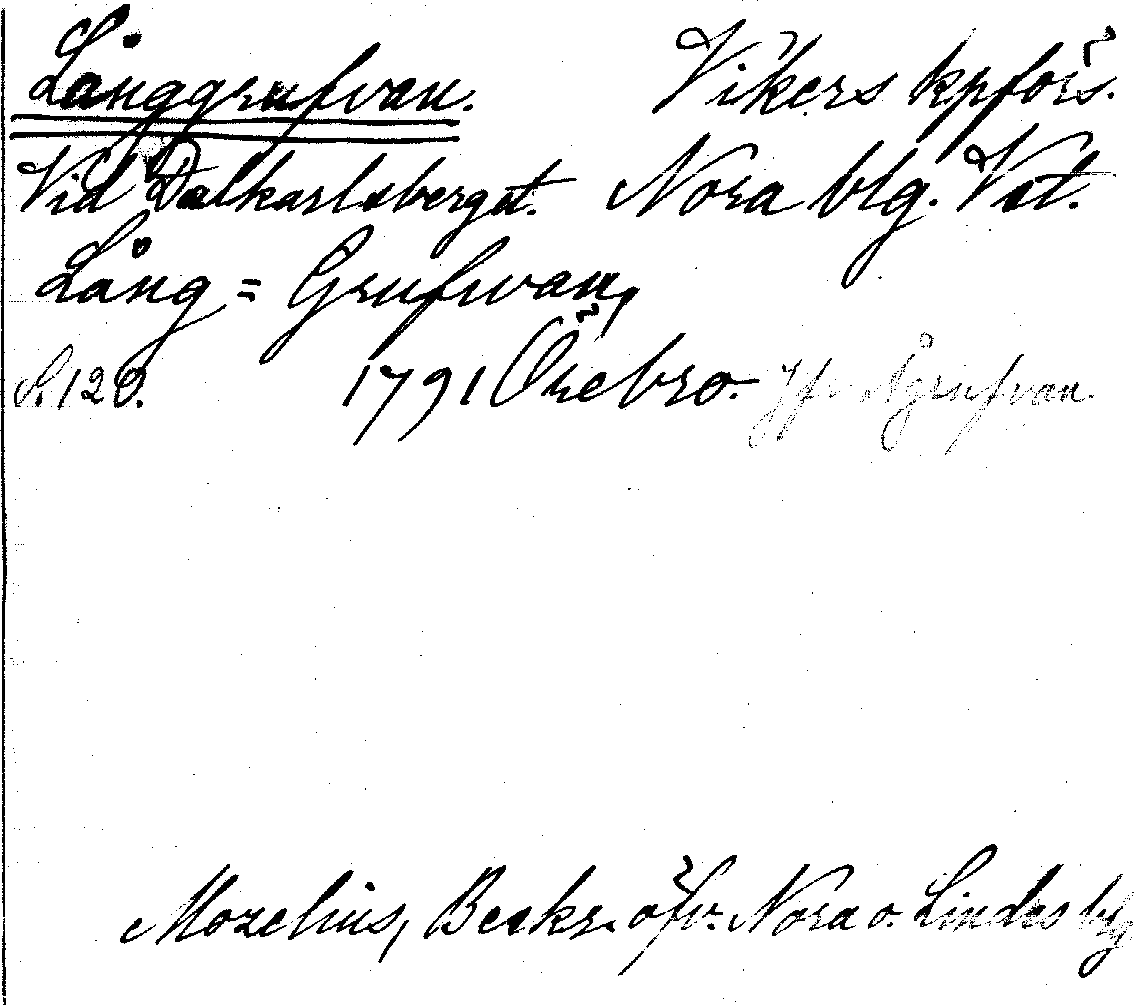 Långgrufvan. Vikers kpförs.
Vid Dalkarlsberget. Nora blg. Vst.
Lång = Grufwan,
S. 120. 1791 Örebro. Jfr Ågrufvan.
Mozelius, Beskr. öfv. Nora o. Lindes blg